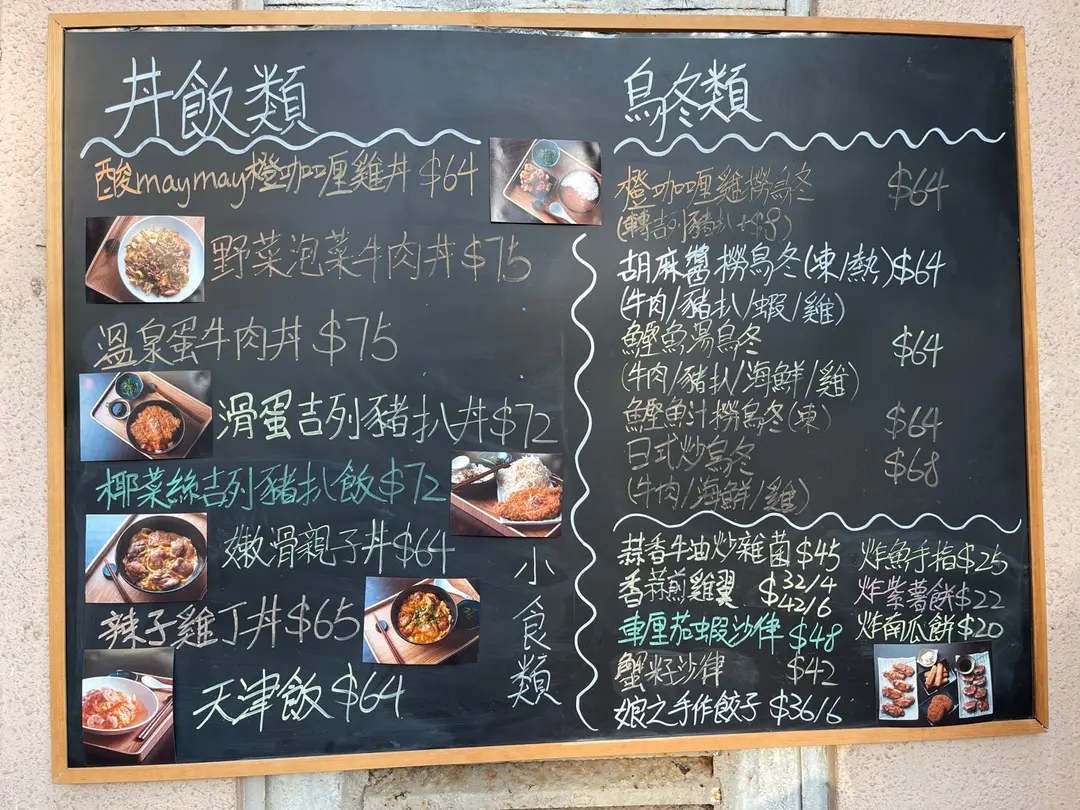 丼飯類
酸maymay橙咖喱雞丼 $64
野菜泡菜牛肉丼 $75
溫泉蛋牛肉丼 $75
滑蛋吉列豬扒丼 $72
椰菜絲吉列豬扒飯 $72
嫩滑親子丼 $64
辣子雞丁丼 $65
天津飯 $64
烏冬類
橙咖喱雞撈烏冬 $64
(轉吉列豬扒+$8)
胡麻醬撈烏冬(凍/熱) $64
(牛肉/豬扒/蝦/雞)
鰹魚湯烏冬 $64
(牛肉/豬扒/海鮮/雞)
鰹魚汁撈烏冬(凍) $64
日式炒烏冬 $68
(牛肉/海鮮/雞)
小食類
蒜香牛油炒雜菌 $45
香蒜煎雞翼 $32/4
$42/6
車厘茄蝦沙律 $48
蟹籽沙律 $42
娘之手作餃子 $36/6
炸魚手指 $25
炸紫薯餅 $22
炸南瓜餅 $20